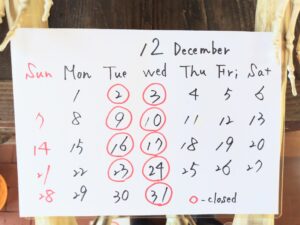 12 December
Sun Mon Tue wed Thu Fri Sat
1 2 3 4 5 6
7 8 9 10 11 12 13
14 15 16 17 18 19 20
21 22 23 24 25 26 27
28 29 30 31 o-closed